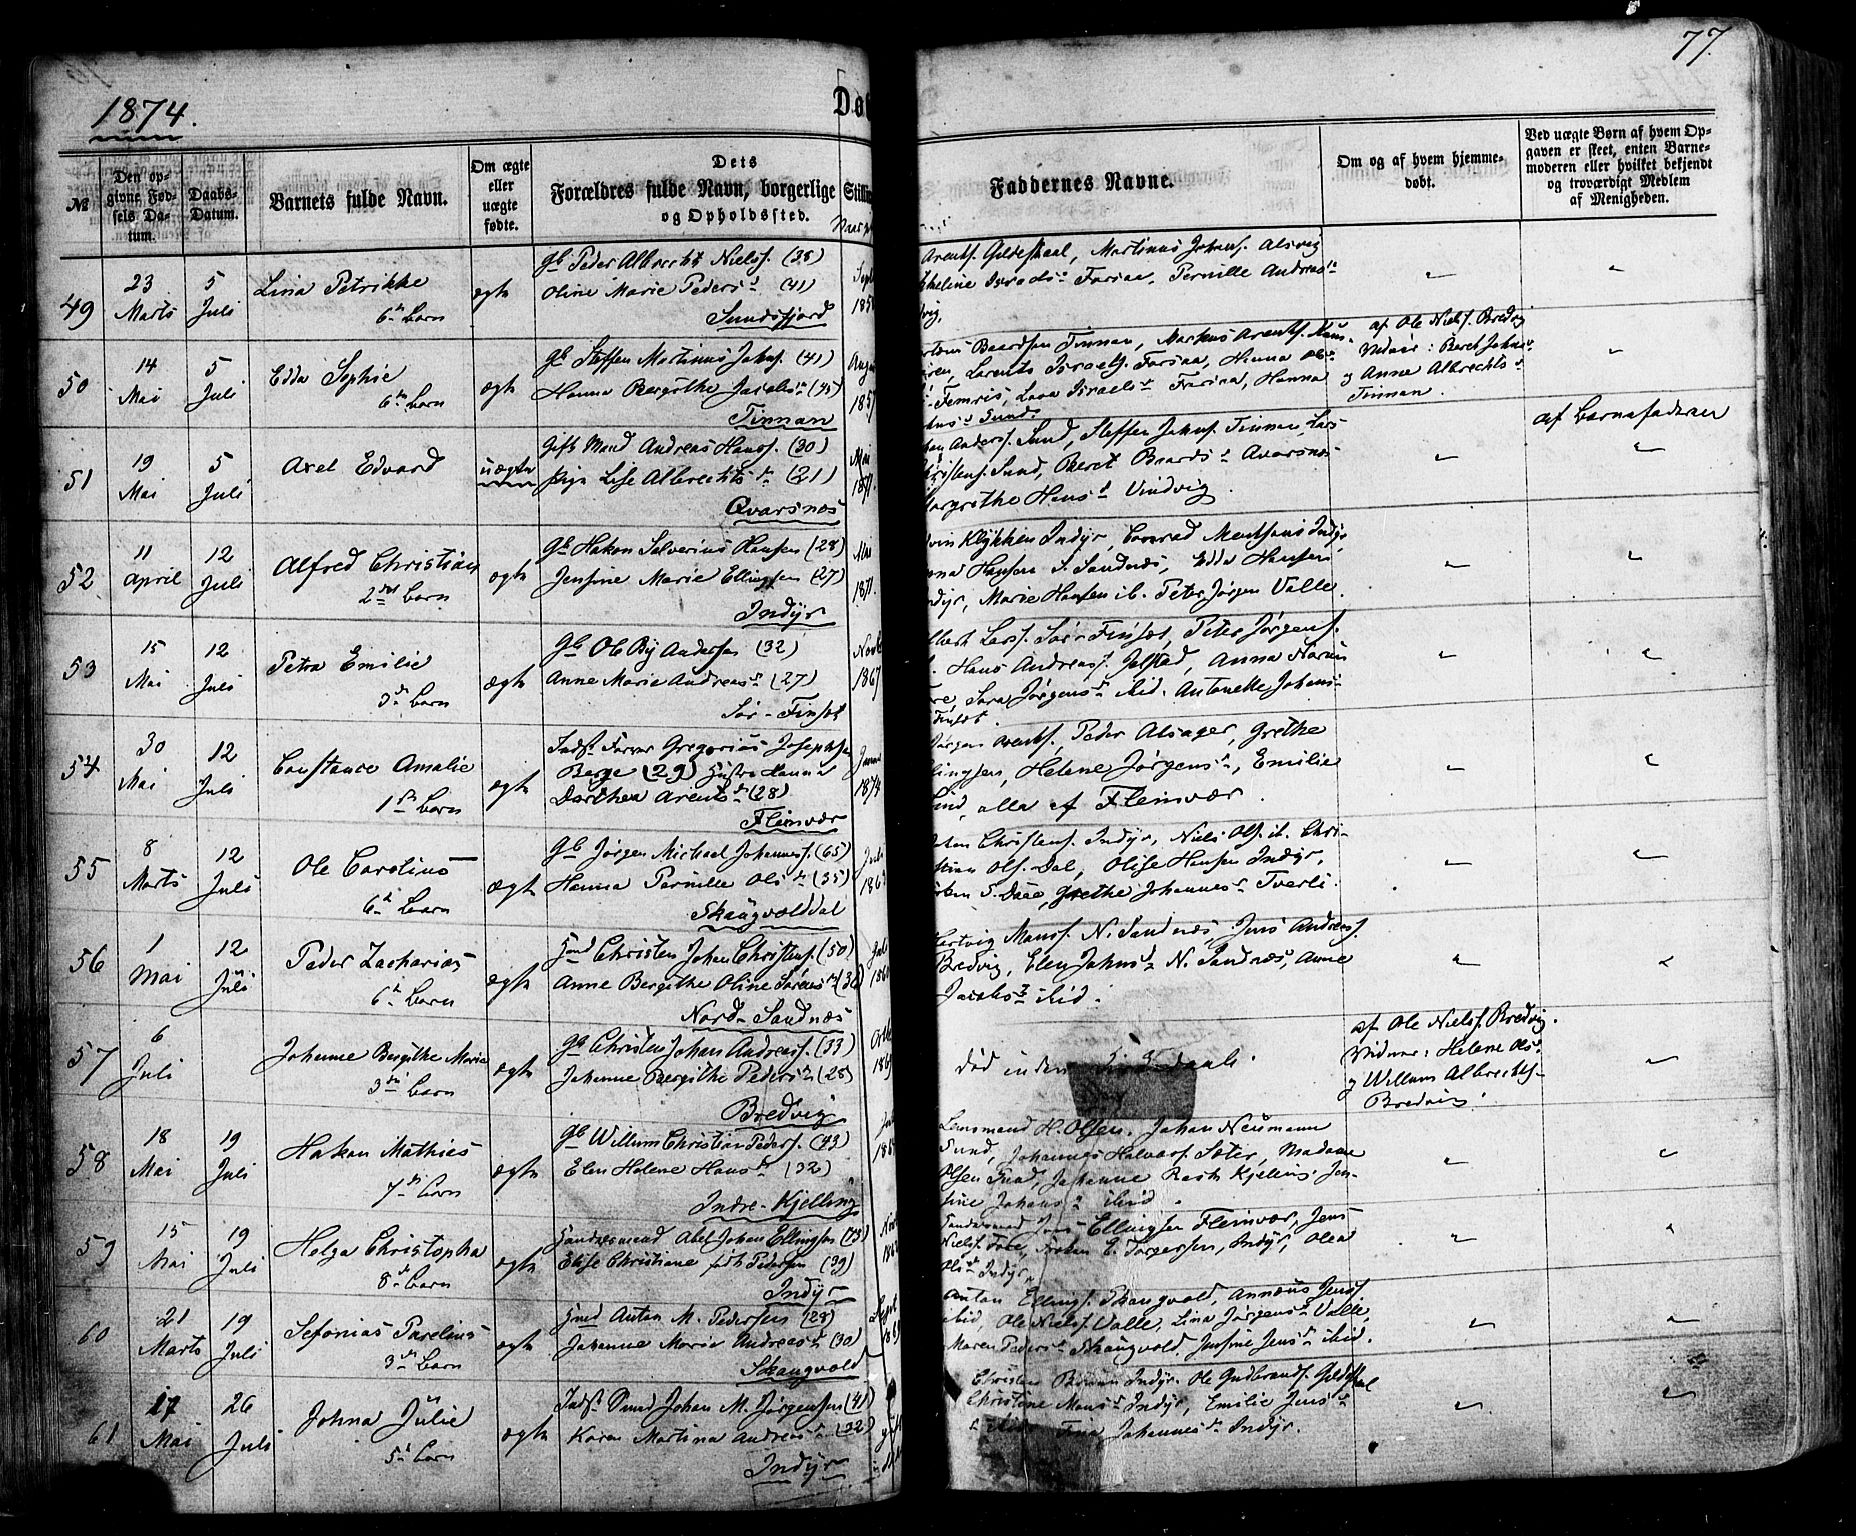 77.
1874.
Dø
№
Den op-
givne Fød-
sels Da-
tum.
Daabs-
Datum.
Barnets fulde Navn.
Om ægte
eller
uægte
fødte.
Dets
Forældres fulde Navn, borgerlige
og Opholdssted.
Stilli
Faddernes Navne.
Om og af hvem hjemme-
døbt.
Ved uægte Børn af hvem Op-
gaven er skeet, enten Barne-
moderen eller hvilket bekjendt
og troværdigt Medlem
af Menigheden.
49
23 Marts
5 Juli
Lina Petrikke
6te Barn
ægte
Gb Peder Albrecht Niels. (38)
Oline Marie Pedersd. (41)
Sundsfjord
Arents. Gildeskaal, Martinus Johns. Alsvig
Israelsd. Forsaa, Pernille Andreasd.
vig.
50
14 Mai
5 Juli
Edda Sophie
6te Barn
ægte
Gb Steffen Martinus Johns. (41)
Hanna Bergithe Jacobsd. (45)
Finnan
Baardsen Finnan, Markus Arents.
Lorents Israels. Forsaa, Hanna Olsd.
Femris, Lava Israelsd. Forsaa, Hanna
Sund.
af Ole Niels. Bredvig
Vidner: Beret Johnsd.
og Anne Albrechtsd.
Finnan.
51
19 Mai
5 Juli
Axel Edvard
uægte
Gift Mand Andreas Hans. (30)
Pige Lise Albrechtsd. (21)
Qvarsnæs
Mai
1871
Anders. Sund, Steffen Johns. Finnan, Lars
Christens. Sund, Beret Baardsd. Qvarsnæs
Margrethe Hansd. Vindvig.
af Barnefaderen
52
11 April
12 Juli
Alfred Christian
2det Barn
ægte
Gb Hakon Selverius Hansen (28)
Jensine Marie Ellingsen (27)
Indyr
1871
Klykken Indyr, Conrad Mentsens Indyr,
Hansen S. Sandnæs, Edda Hansen
Indyr, Marie Hansen ib. Peter Jørgen Valle.
53
15 Mai
12 Juli
Petra Emilie
3die Barn
ægte
Gb Ole By Andersen (32)
Anne Marie Andreasd. (27)
Sør-Finset
1867
Lars. Sør-Finset, Peter Jørgens.
Hans Andreas. Jelstad, Anna
Sara Jørgensd. ibid. Antonette Johans
Finset.
54
30 Mai
12 Juli
Constance Amalie
1ste Barn
ægte
Inds. Farver Gregorius Josephsen
Berge (29) Hustru Hanna
Dorthea Arentsd. (28)
Fleinvær
1874
Jørgen Arents., Peder Alsager, Grethe
Ellingsen, Helene Jørgensd., Emilie
Sund, alle af Fleinvær.
55
8 Marts
12 Juli
Ole Carolius
6te Barn
ægte
Gb Jørgen Michael Johannes. (65)
Hanna Pernille Olsd. (35)
Skaugvolddal
Christens. Indyr, Niels Ols. ib. Chri-
stian Ols. Dal, Olise Hansen Indyr,
Grethe Johannesd. Tverli.
56
1 Mai
12 Juli
Peder Zacharias
6te Barn
ægte
Gmd Christen Johan Christens. (50)
Anne Bergithe Oline Sørensd. (36)
Nord-Sandnæs
Hertvig Mons. N. Sandnæs, Jens Andreas.
Bredvig, Elen Johnsd. N. Sandnæs, Anne
Jacobsd. ibid.
57
6 Juli
Johanne Bergithe Marie
3die Barn
ægte
Gb Christen Johan Andreass. (33)
Johanne Bergithe Pedersd. (28)
Bredvig
Død inden
af Ole Niels. Bredvig.
Vidner: Helene Olsd.
og Willum Albrechts.
Bredvig.
58
18 Mai
19 Juli
Hakon Mathias
7de Barn
ægte
Gb Willum Christian Peders. (43)
Elen Helene Hansd. (32)
Indre-Kjelling
Lensmand H. Olsen, Johan Neumann
Sund, Johannes Halvors. Seter, Madame
Olsen Sund, Johanne Rask Kjelling, Jen-
sine Johansd. ibid.
59
15 Mai
19 Juli
Helga Christopha
8de Barn
ægte
Handelsmand Abel Johan Ellingsen (43)
Elise Christiane født Pedersen (39)
Indyr
Handelsmand Jens Ellingsen Fleinvær, Jens
Niels. Fore, E. Torgersen, Indyr, Olea
Olsd. Indyr.
60
21 Marts
19 Juli
Sefonias Parelius
3die Barn
ægte
Gmd Anton M. Pedersen (28)
Johanne Marie Andreasd. (30)
Skaugvold
Anton Ellings. Skaugvold, Annæus Jens.
ibid, Ole Niels. Valle, Lina Jørgensd. Valle,
Maren Pedersd. Skaugvold, Jensine Jensd. ibid.
61
17 Mai
26 Juli
Johna Julie
5te Barn
ægte
Inds. Johan M. Jørgensen (41)
Karen Martina Andreasd. (32)
Indyr
Christen Indyr. Ole Gudbrands. Gildeskaal
Christine Monsd. Indyr, Emilie Jensd.
Johannesd. Indyr.